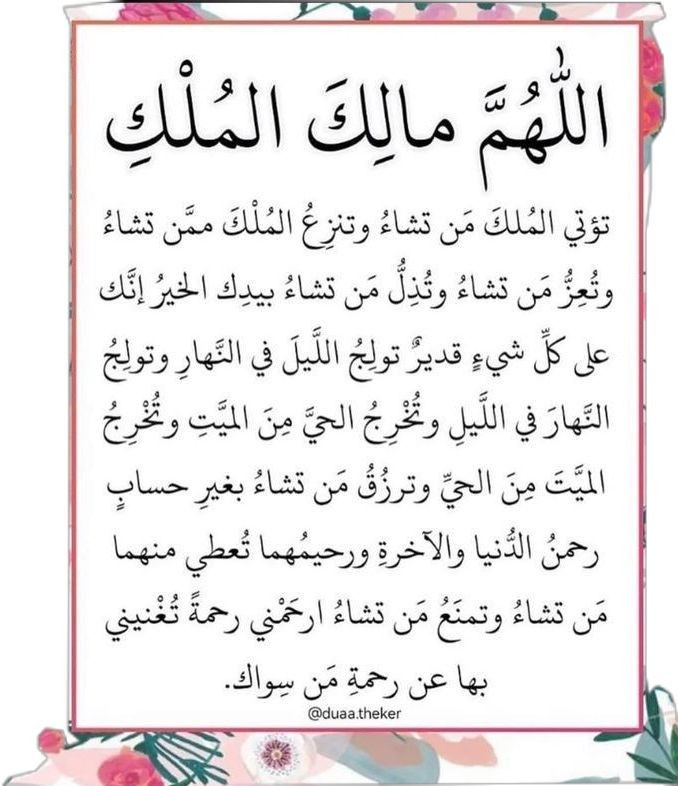 اللّٰهُمَّ مالِكَ المُلْكِ
تؤتي المُلكَ مَن تشاءُ وتنزِعُ المُلْكَ ممَّن تشاءُ
وتُعِزُّ مَن تشاءُ وتُذِلُّ مَن تشاءُ بيدِك الخيرُ إنَّك
على كلِّ شيءٍ قديرٌ تولِجُ اللَّيلَ في النَّهارِ وتولِجُ
النَّهارَ في اللَّيلِ وتُخْرِجُ الحيَّ مِنَ الميَّتِ وتُخْرِجُ
الميَّتَ مِنَ الحيِّ وترزُقُ مَن تشاءُ بغيرِ حسابٍ
رحمنُ الدُّنيا والآخرةِ ورحيمُهما تُعطي منهما
مَن تشاءُ وتمنَعُ مَن تشاءُ ارحَمْني رحمةً تُغْنيني
بها عن رحمةِ مَن سِواك.
@duaa.theker